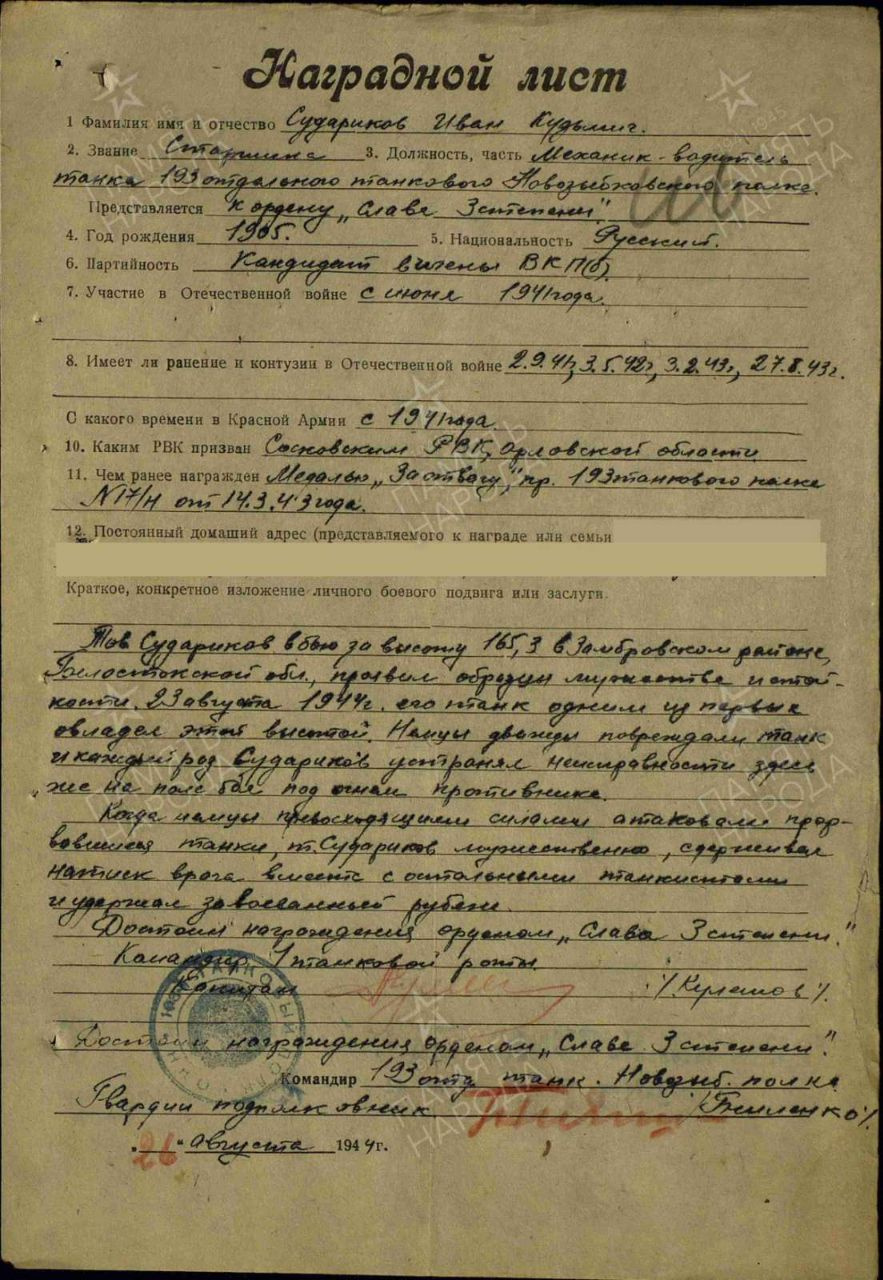 Наградной лист
1 Фамилия имя и отчество Судариков Иван Кузьмич.
2. Звание Старшина 3. Должность, часть Механик-водитель
танка 193 отдельного танкового Новозыбковского полка.
Представляется к ордену „Слава 3 степени".
4. Год рождения 1905. 5. Национальность Русский.
6. Партийность Кандидат в члены ВКП(б).
7. Участие в Отечественной войне с июня 1941 года.
8. Имеет ли ранение и контузии в Отечественной войне 2.9.41г, 3.5.42г, 3.2.43г, 27.8.43г.
С какого времени в Красной Армии с 1941 года.
10. Каким РВК призван Сосковским РВК, Орловской области
11. Чем ранее награжден Медалью „За отвагу", пр. 193 танкового полка
N17/н от 14.3.43 года.
12. Постоянный домаший адрес (представляемого к награде или семьи
Краткое, конкретное изложение личного боевого подвига или заслуги.
Тов Судариков в бою за высоту 165,3 в Замбровском районе,
Белостокской обл., проявил образцы мужества и стой-
кости. 23 августа 1944г. его танк одним из первых
овладел этой высотой. Немцы дважды повреждали танк
и каждый раз Судариков устранял неисправности здесь
же на поле боя под огнем противника.
Когда немцы превосходящими силами атаковали прор-
вавшиеся танки, т. Судариков мужественно, сдерживал
натиск врага вместе с остальными танкистами
и удержал завоеванный рубеж.
Достоин награждения орденом „Слава 3 степени".
Командир 1 танковой роты
Капитан /Кулешов/.
Достоин награждения орденом „Слава 3 степени".
Командир 193 отд танк. Новозыб. полка
Гвардии подполковник /Биленко/.
„26" августа 1944г.
ПАМЯТЬ НАРОДА